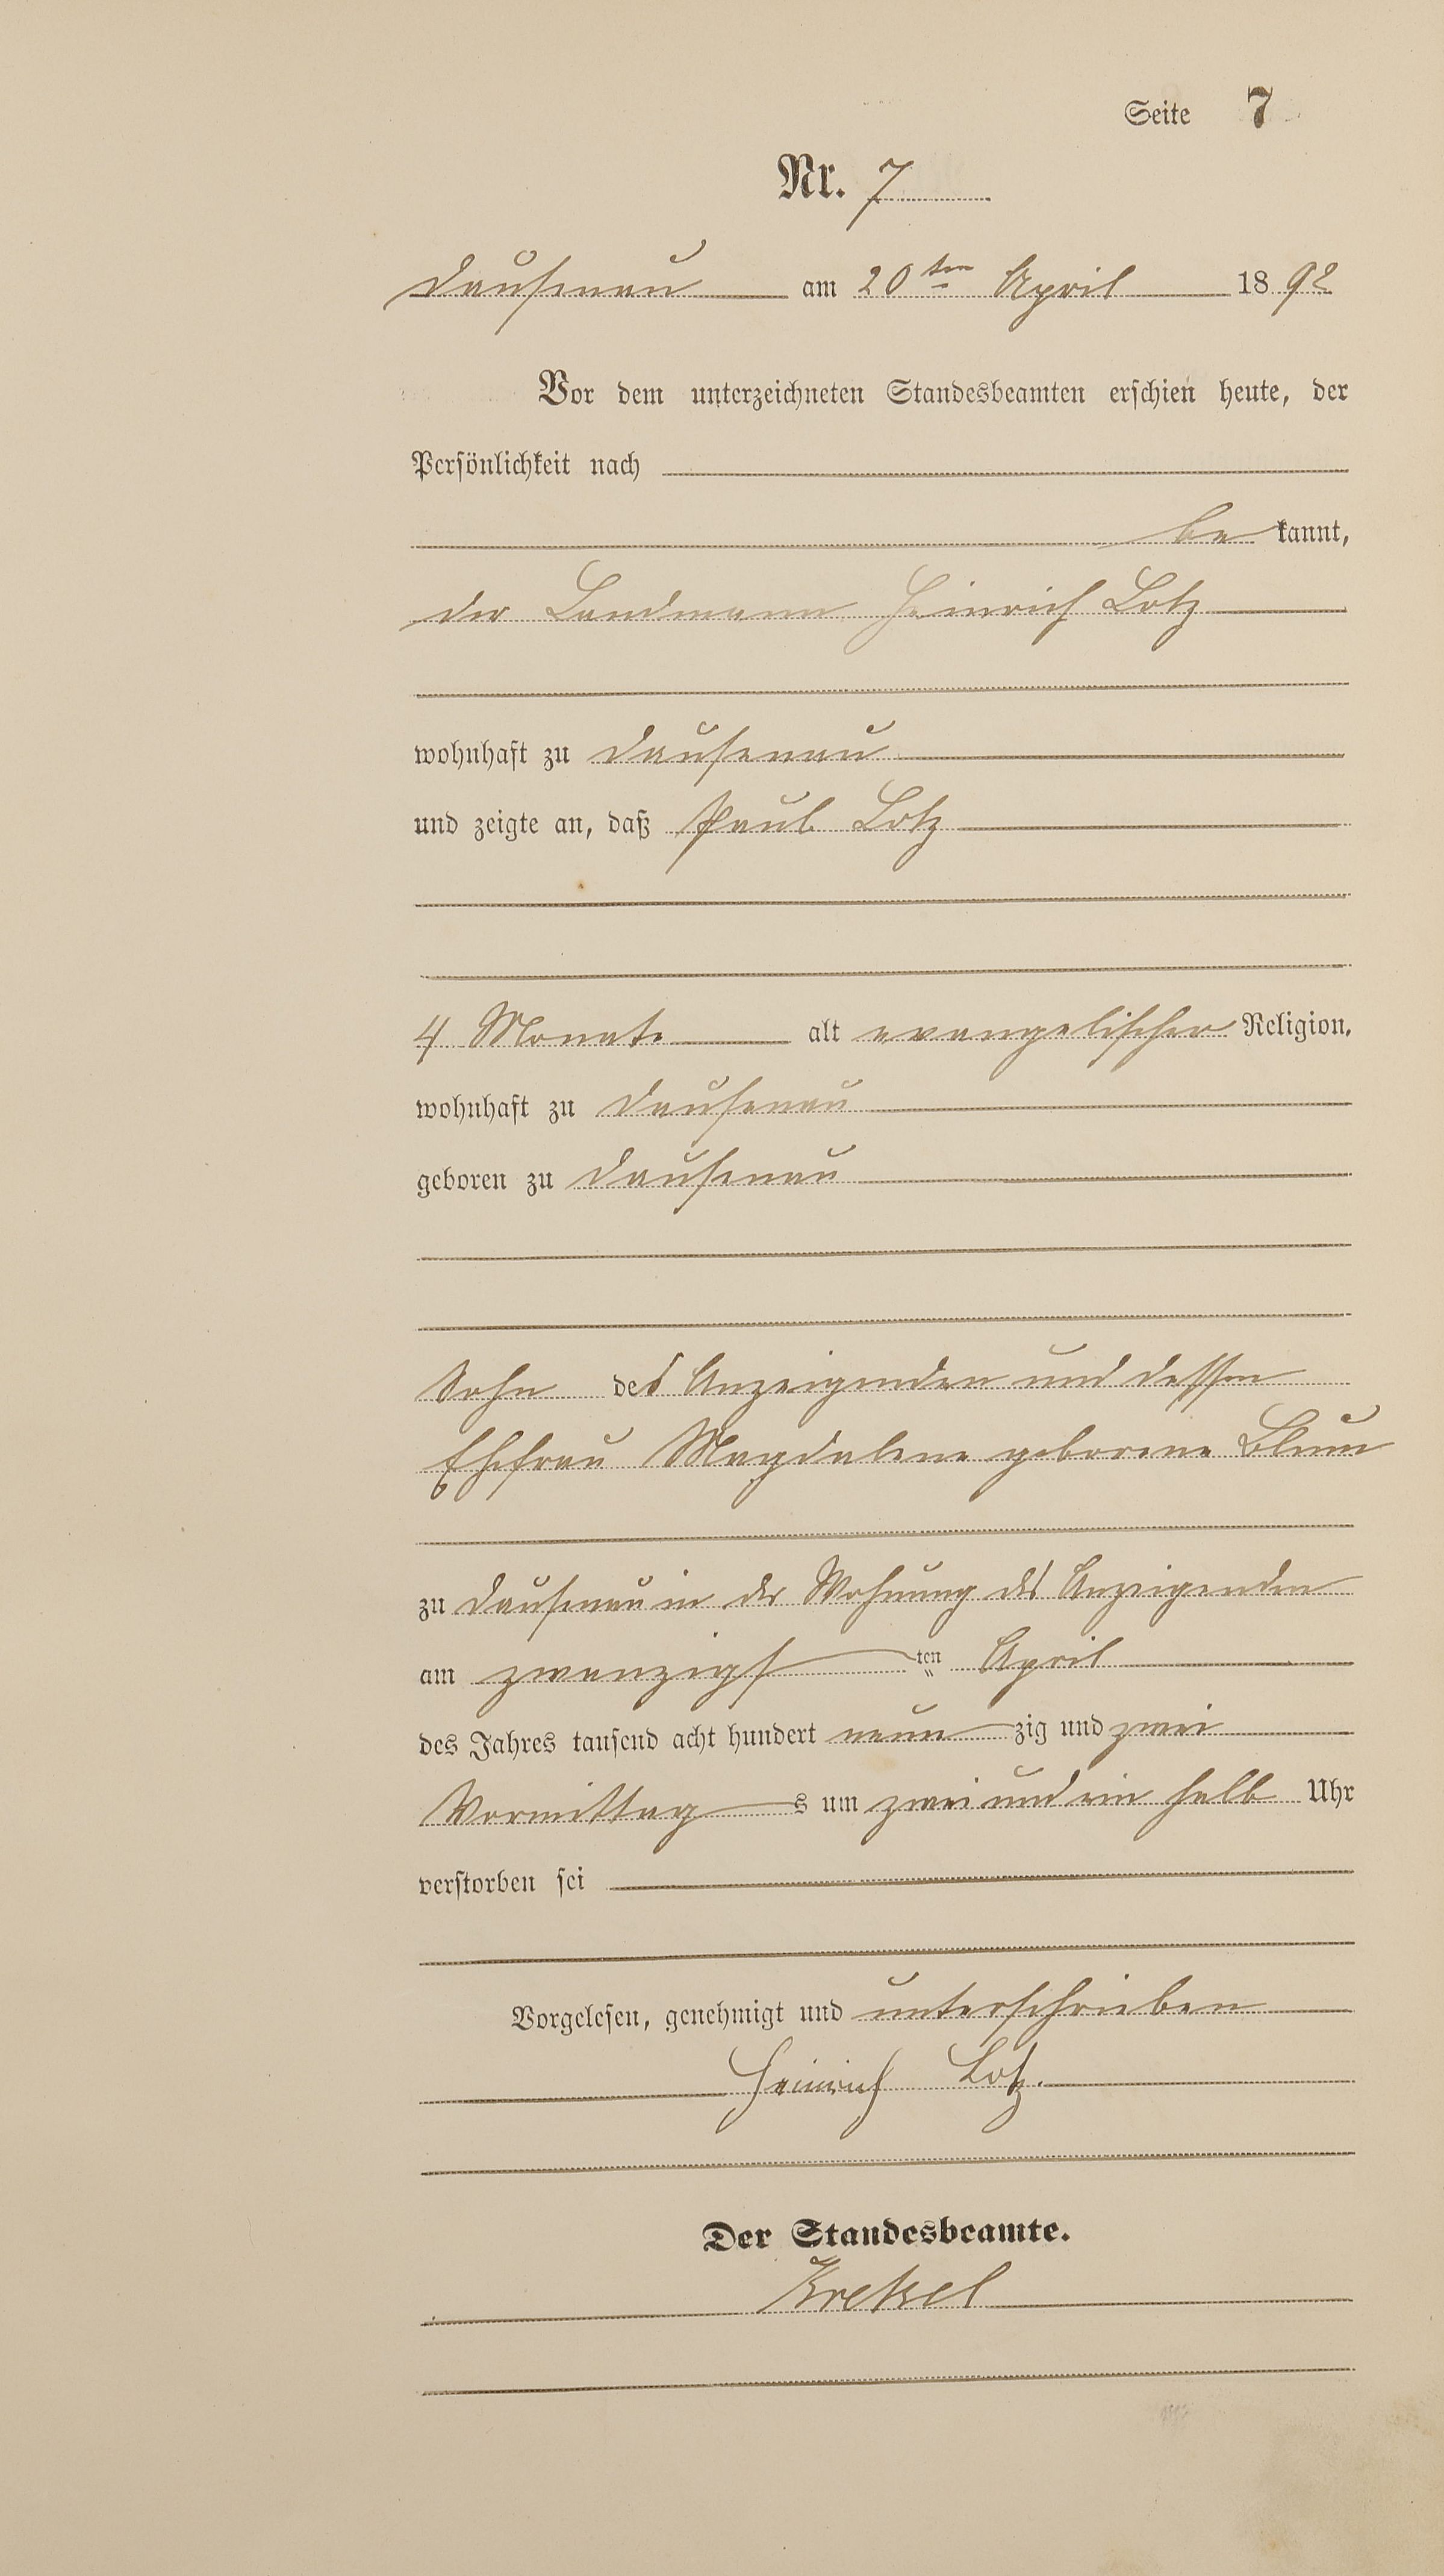 Seite 7
Nr. 7
Dausenau am 20ten April 1892
Vor dem unterzeichneten Standesbeamten erschien heute, der
Persönlichkeit nach
bekannt,
der Landmann Heinrich Lotz
wohnhaft zu Dausenau
und zeigte an, daß Paul Lotz
4 Monate alt evangelischer Religion,
wohnhaft zu Dausenau
geboren zu Dausenau
Sohn des Anzeigenden und dessen
Ehefrau Magdalene geborene
zu Dausenau in der Wohnung des Anzeigenden
am zwanzigsten April
des Jahres tausend acht hundert neunzig und zwei
Vormittags um zwei und ein halb Uhr
verstorben sei
Vorgelesen, genehmigt und unterschrieben
Heinrich Lotz.
Der Standesbeamte.